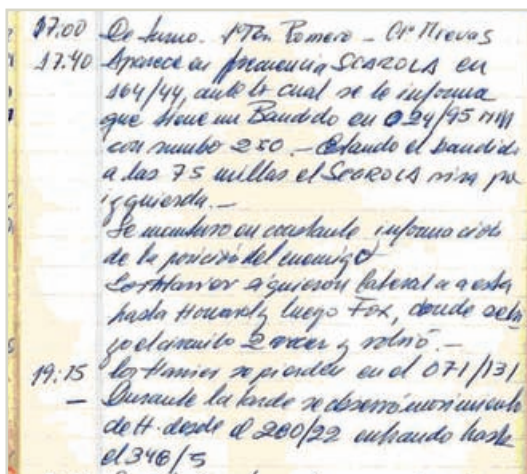 17:00 De turno. 1º Ten. Romero - Cº Nievas
17.40 Aparece en frecuencia SCAROLA en
164/44, ante lo cual se le informa
que tiene un Bandido en 024/95 MN
con rumbo 250.- Estando el bandido
a las 75 millas el SCAROLA vira por
izquierda.-
Se mantuvo en constante información
de la posición del enemigo
Los Harrier siguieron lateral a esta
hasta Howard y luego Fox, donde
el circuito 2 veces y volvió.-
19:15 los Harrier se pierden en el 071/131
- Durante la tarde se observó movimiento
de H. desde el 260/22 entrando hasta
el 346/5